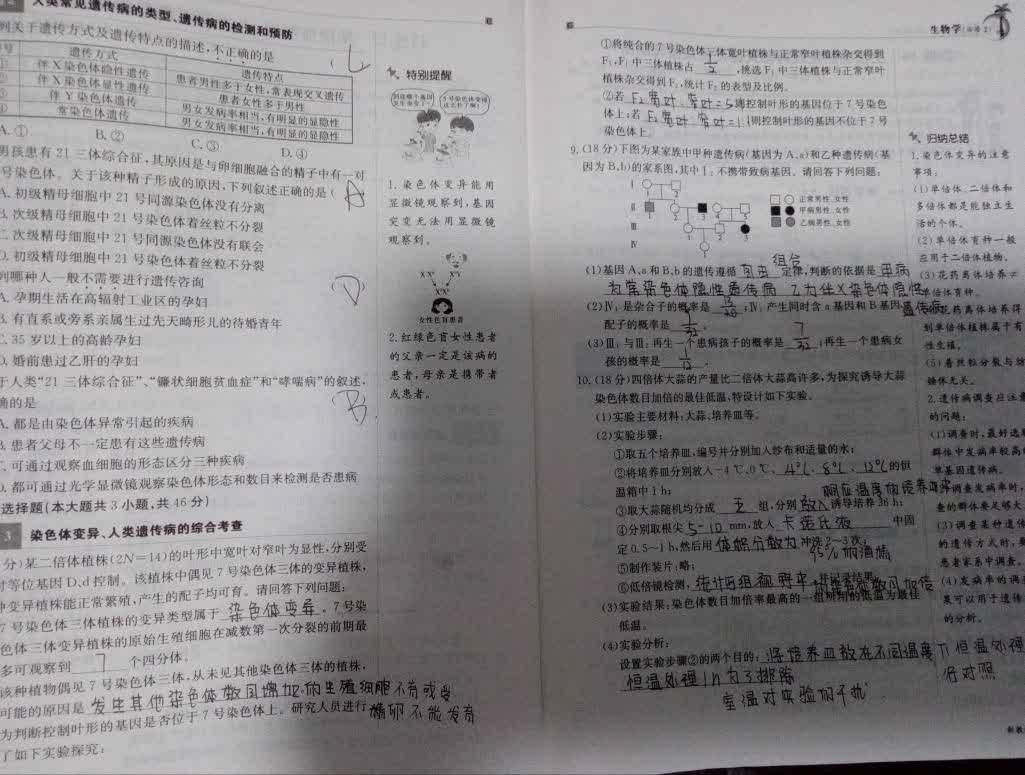 人类常见遗传病的类型、遗传病的检测和预防
列关于遗传方式及遗传特点的描述,不正确的是
遗传方式 遗传特点
伴X染色体隐性遗传 患者男性多于女性,常表现交叉遗传
伴X染色体显性遗传 患者女性多于男性
伴Y染色体遗传 男女发病率相当,有明显的显隐性
常染色体遗传 男女发病率相当,有明显的显隐性
A.① B.② C.③ D.④
男孩患有21三体综合征,其原因是与卵细胞融合的精子中有一对
号染色体。关于该种精子形成的原因,下列叙述正确的是( A
A.初级精母细胞中21号同源染色体没有分离
B.次级精母细胞中21号染色体着丝粒不分裂
C.次级精母细胞中21号同源染色体没有联会
D.初级精母细胞中21号染色体着丝粒不分裂
列哪种人一般不需要进行遗传咨询 ( D )
A.孕期生活在高辐射工业区的孕妇
B.有直系或旁系亲属生过先天畸形儿的待婚青年
C.35岁以上的高龄孕妇
D.婚前患过乙肝的孕妇
于人类“21三体综合征”、“镰状细胞贫血症”和“哮喘病”的叙述,
确的是 ( B )
A.都是由染色体异常引起的疾病
B.患者父母不一定患有这些遗传病
C.可通过观察血细胞的形态区分三种疾病
D.都可通过光学显微镜观察染色体形态和数目来检测是否患病
选择题(本大题共3小题,共46分)
3 染色体变异、人类遗传病的综合考查
分)某二倍体植株(2N=14)的叶形中宽叶对窄叶为显性,分别受
对等位基因D、d控制。该植株中偶见7号染色体三体的变异植株,
种变异植株能正常繁殖,产生的配子均可育。请回答下列问题:
7号染色体三体植株的变异类型属于 染色体变异 。7号染
色体三体变异植株的原始生殖细胞在减数第一次分裂的前期最
多可观察到 7 个四分体。
该种植物偶见7号染色体三体,从未见其他染色体三体的植株,
可能的原因是 发生其他染色体数目增加的生殖细胞不育或受
精卵不能发育
为判断控制叶形的基因是否位于7号染色体上。研究人员进行
了如下实验探究:
特别提醒
1.染色体变异能用
显微镜观察到,基因
突变无法用显微镜
观察到。
女性色盲患者
2.红绿色盲女性患者
的父亲一定是该病的
患者,母亲是携带者
或患者。
生物学(必修2)
①将纯合的7号染色体三体宽叶植株与正常窄叶植株杂交得到
F₁,F₁中三体植株占 1/2 ,挑选F₁中三体植株与正常窄叶
植株杂交得到F₂,统计F₂的表型及比例。
②若 F₂宽叶:窄叶=5:1 则控制叶形的基因位于7号染色
体上;若 F₂宽叶:窄叶=1:1 则控制叶形的基因不位于7号
染色体上。
9.(18分)下图为某家族中甲种遗传病(基因为A、a)和乙种遗传病(基
因为B、b)的家系图,其中Ⅰ₁不携带致病基因。请回答下列问题:
正常男性、女性
甲病男性、女性
乙病男性、女性
组合
(1)基因A、a和B、b的遗传遵循 自由 定律,判断的依据是 甲病
为常染色体隐性遗传病 乙为伴X染色体隐性
遗传病
(3)Ⅲ₁与Ⅲ₂再生一个患病孩子的概率是 7/32 ;再生一个患病女
孩的概率是
10.(18分)四倍体大蒜的产量比二倍体大蒜高许多,为探究诱导大蒜
染色体数目加倍的最佳低温,特设计如下实验。
(1)实验主要材料:大蒜、培养皿等。
(2)实验步骤:
①取五个培养皿,编号并分别加入纱布和适量的水;
②将培养皿分别放入-4 ℃、0 ℃、 4℃、8℃、12℃ 的恒
温箱中1 h;
相应温度的培养皿中
③取大蒜随机均分成 五 组,分别 放入 诱导培养36 h;
④分别取根尖 5-10 mm,放入 卡诺氏液 中固
定0.5~1 h,然后用 体积分数为 冲洗2~3次;
95%的酒精
⑤制作装片:略;
⑥低倍镜检测,
(3)实验结果:染色体数目加倍率最高的一组所用的低温为最佳
低温。
(4)实验分析:
设置实验步骤②的两个目的: 将培养皿放在不同温度下恒温处理
恒温处理1h为了排除
室温对实验的干扰
归纳总结
1.染色体变异的注意
事项:
(1)单倍体、二倍体和
多倍体都是能独立生
活的个体。
(2)单倍体育种一般
应用于二倍体植物。
(3)花药离体培养≠
单倍体育种。
2.遗传病调查应注意
的问题:
(1)调查时,最好选
群体中发病率较高
单基因遗传病。
的分析。